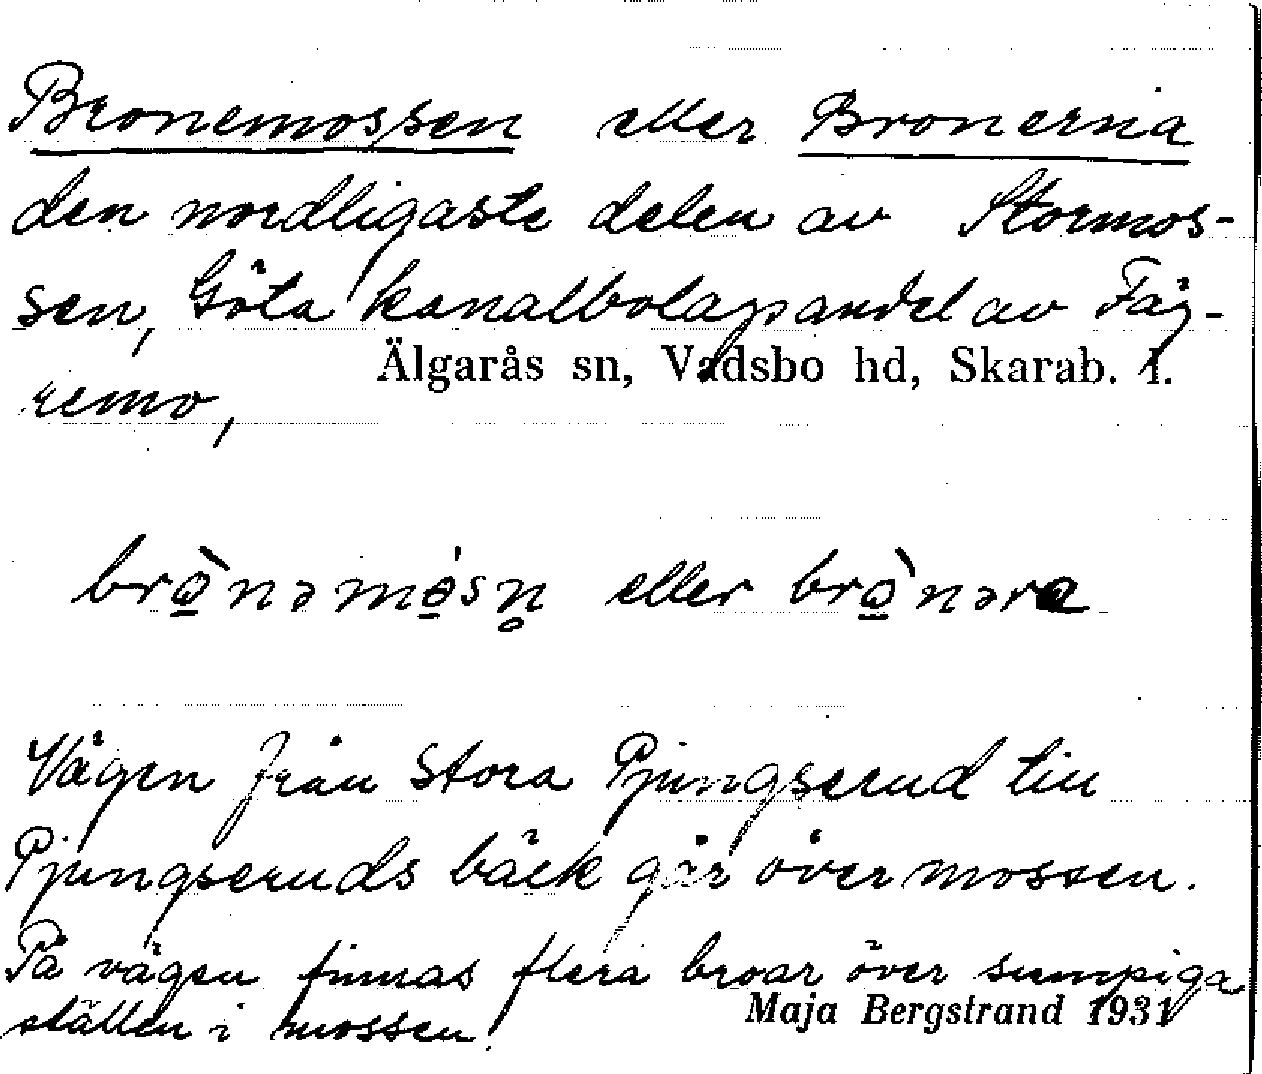 Bronemossen eller Bronerna
den nordligaste delen av Stormos-
sen, Göta kanalbolagsandel av Fäg-
Älgarås sn, Vadsbo hd, Skarab. l.
remo,
brò̱nəmó̱sn̥ eller brò̱nəra
Vägen från Stora Pjungserud till
Pjungseruds bäck går över mossen.
På vägen finnas flera broar över sumpiga
ställen i mossen.
Maja Bergstrand 1931